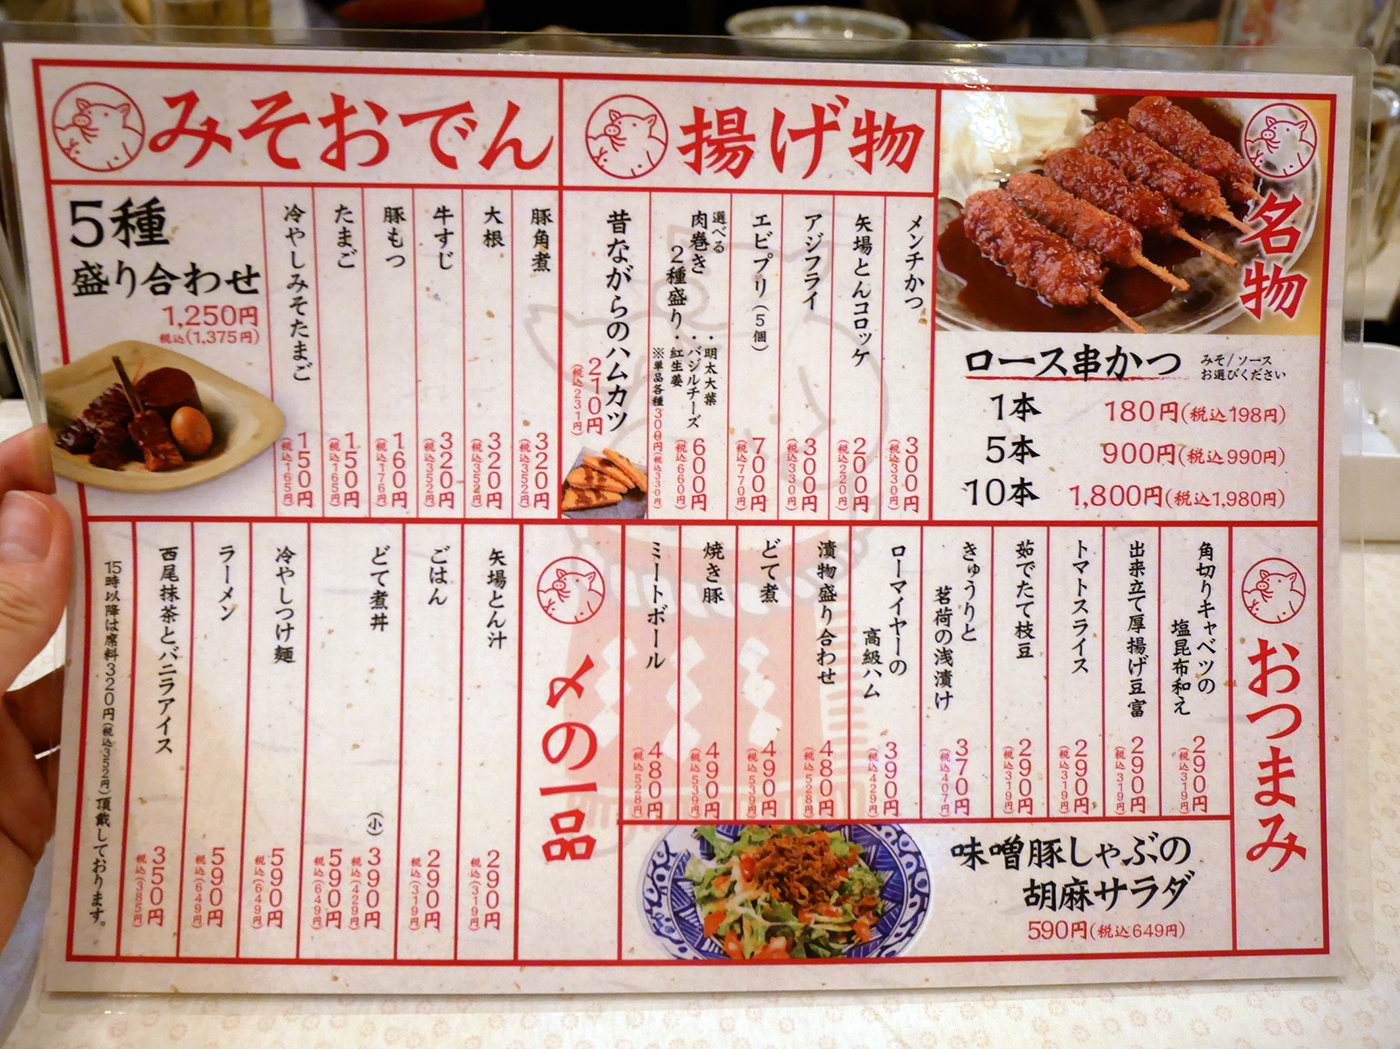 みそおでん
5種
盛り合わせ
1,250円
税込(1,375円)
豚角煮
320円
(税込352円)
大根
320円
(税込352円)
牛すじ
320円
(税込352円)
豚もつ
160円
(税込176円)
たまご
150円
(税込165円)
冷やしみそたまご
150円
(税込165円)
揚げ物
メンチかつ
300円
(税込330円)
矢場とんコロッケ
200円
(税込220円)
アジフライ
300円
(税込330円)
エビプリ(5個)
700円
(税込770円)
選べる
肉巻き
2種盛り
・明太大葉
・バジルチーズ
・紅生姜
※単品各種300円(税込330円)
600円
(税込660円)
昔ながらのハムカツ
210円
(税込231円)
名物
ロース串かつ
みそ/ソース
お選びください
1本 180円(税込198円)
5本 900円(税込990円)
10本 1,800円(税込1,980円)
おつまみ
角切りキャベツの
塩昆布和え
290円
(税込319円)
出来立て厚揚げ豆富
290円
(税込319円)
トマトスライス
290円
(税込319円)
茹でたて枝豆
290円
(税込319円)
きゅうりと
茗荷の浅漬け
370円
(税込407円)
ローマイヤーの
高級ハム
390円
(税込429円)
漬物盛り合わせ
480円
(税込528円)
どて煮
490円
(税込539円)
焼き豚
490円
(税込539円)
ミートボール
480円
(税込528円)
味噌豚しゃぶの
胡麻サラダ
590円(税込649円)
〆の一品
矢場とん汁
290円
税込(319円)
ごはん
290円
税込(319円)
どて煮丼
(小)390円
税込(429円)
590円
税込(649円)
冷やしつけ麺
590円
税込(649円)
ラーメン
590円
税込(649円)
西尾抹茶とバニラアイス
350円
税込(385円)
15時以降は席料320円(税込352円)頂戴しております。